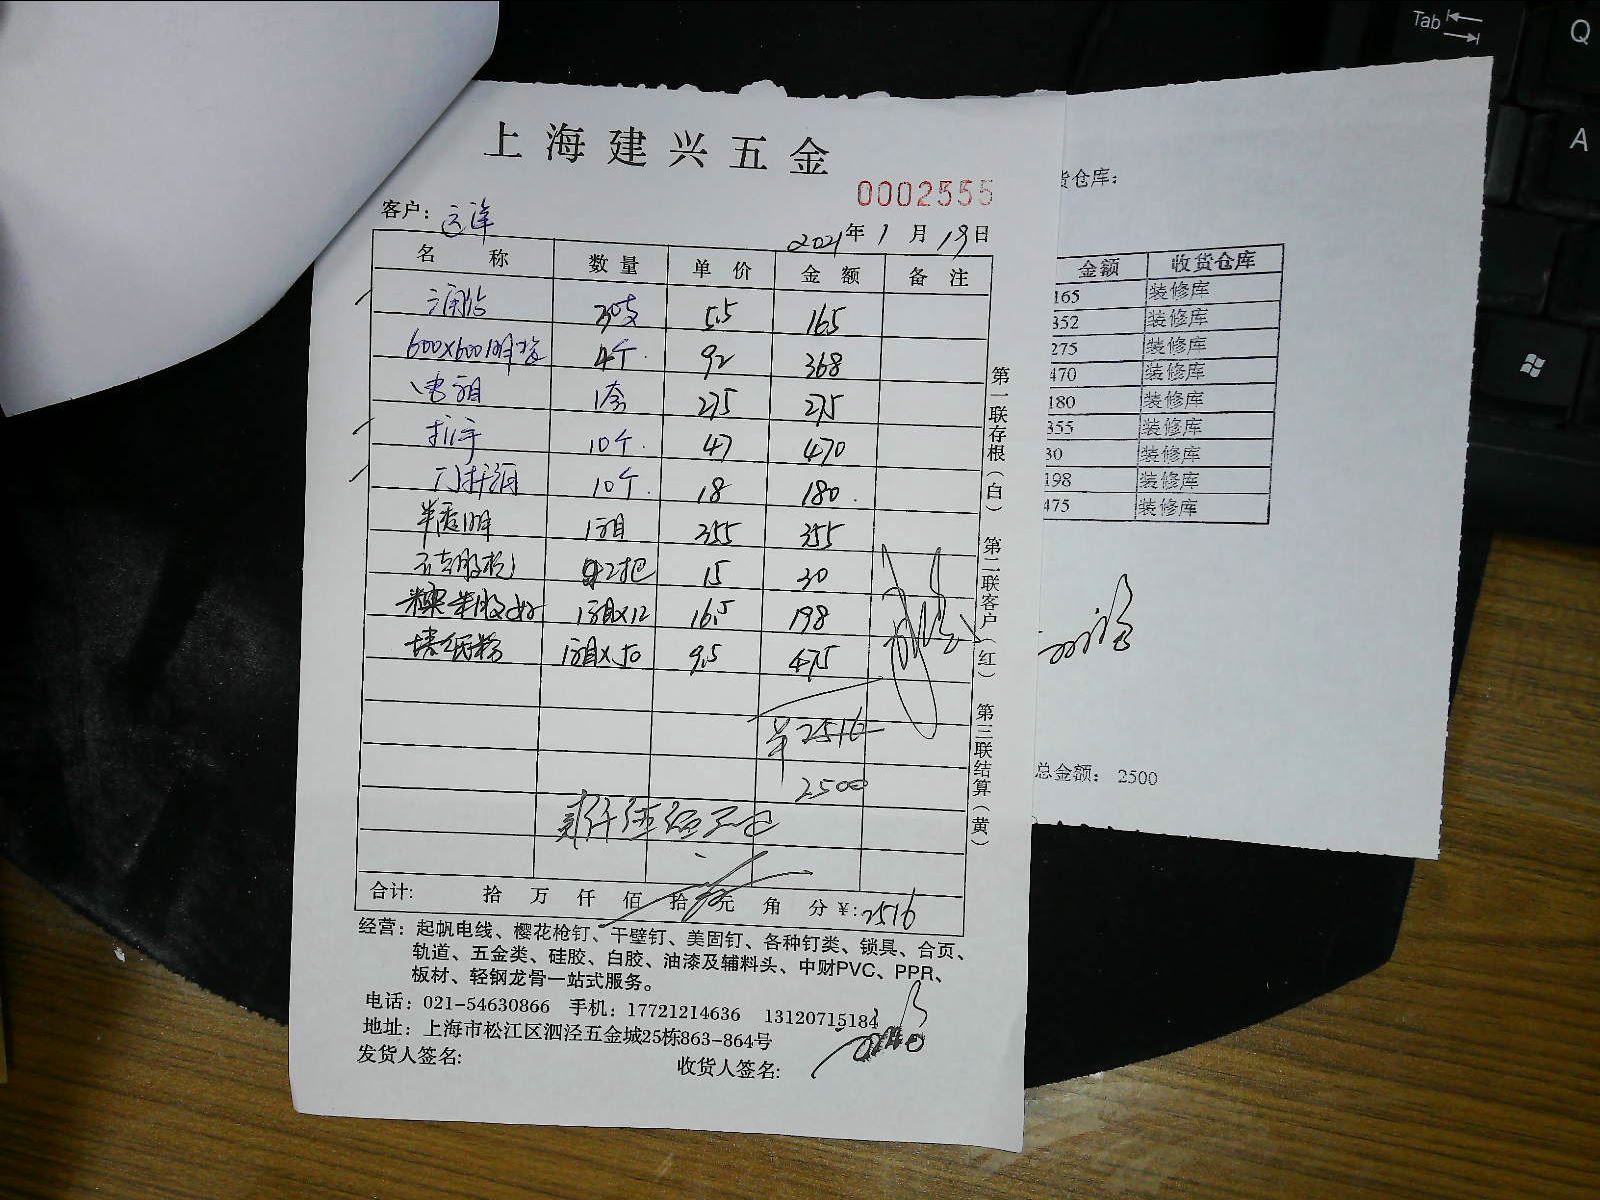 上海建兴五金
0002555
客户：
2021年1月19日
名称 数量 单价 金额 备注
30支 5.5 165
600X600 4个. 92 368
1套 275 275
10个. 47 470
10个. 18 180.
半透明 1箱 355 355
2把 15 30
1箱X12 16.5 198
填缝粉 1箱X50 9.5 475
2516
2500
贰仟伍佰元
合计： 拾 万 仟 佰 拾 元 角 分 ¥:2516
经营：起帆电线、樱花枪钉、干壁钉、美固钉、各种钉类、锁具、合页、
轨道、五金类、硅胶、白胶、油漆及辅料头、中财PVC、PPR、
板材、轻钢龙骨一站式服务。
电话：021-54630866 手机：17721214636 13120715184
地址：上海市松江区泗泾五金城25栋863-864号
发货人签名: 收货人签名:
第一联存根（白） 第二联客户（红） 第三联结算（黄）
货仓库：
金额 收货仓库
165 装修库
352 装修库
275 装修库
470 装修库
180 装修库
355 装修库
30 装修库
198 装修库
475 装修库
总金额： 2500
Tab
Q
A